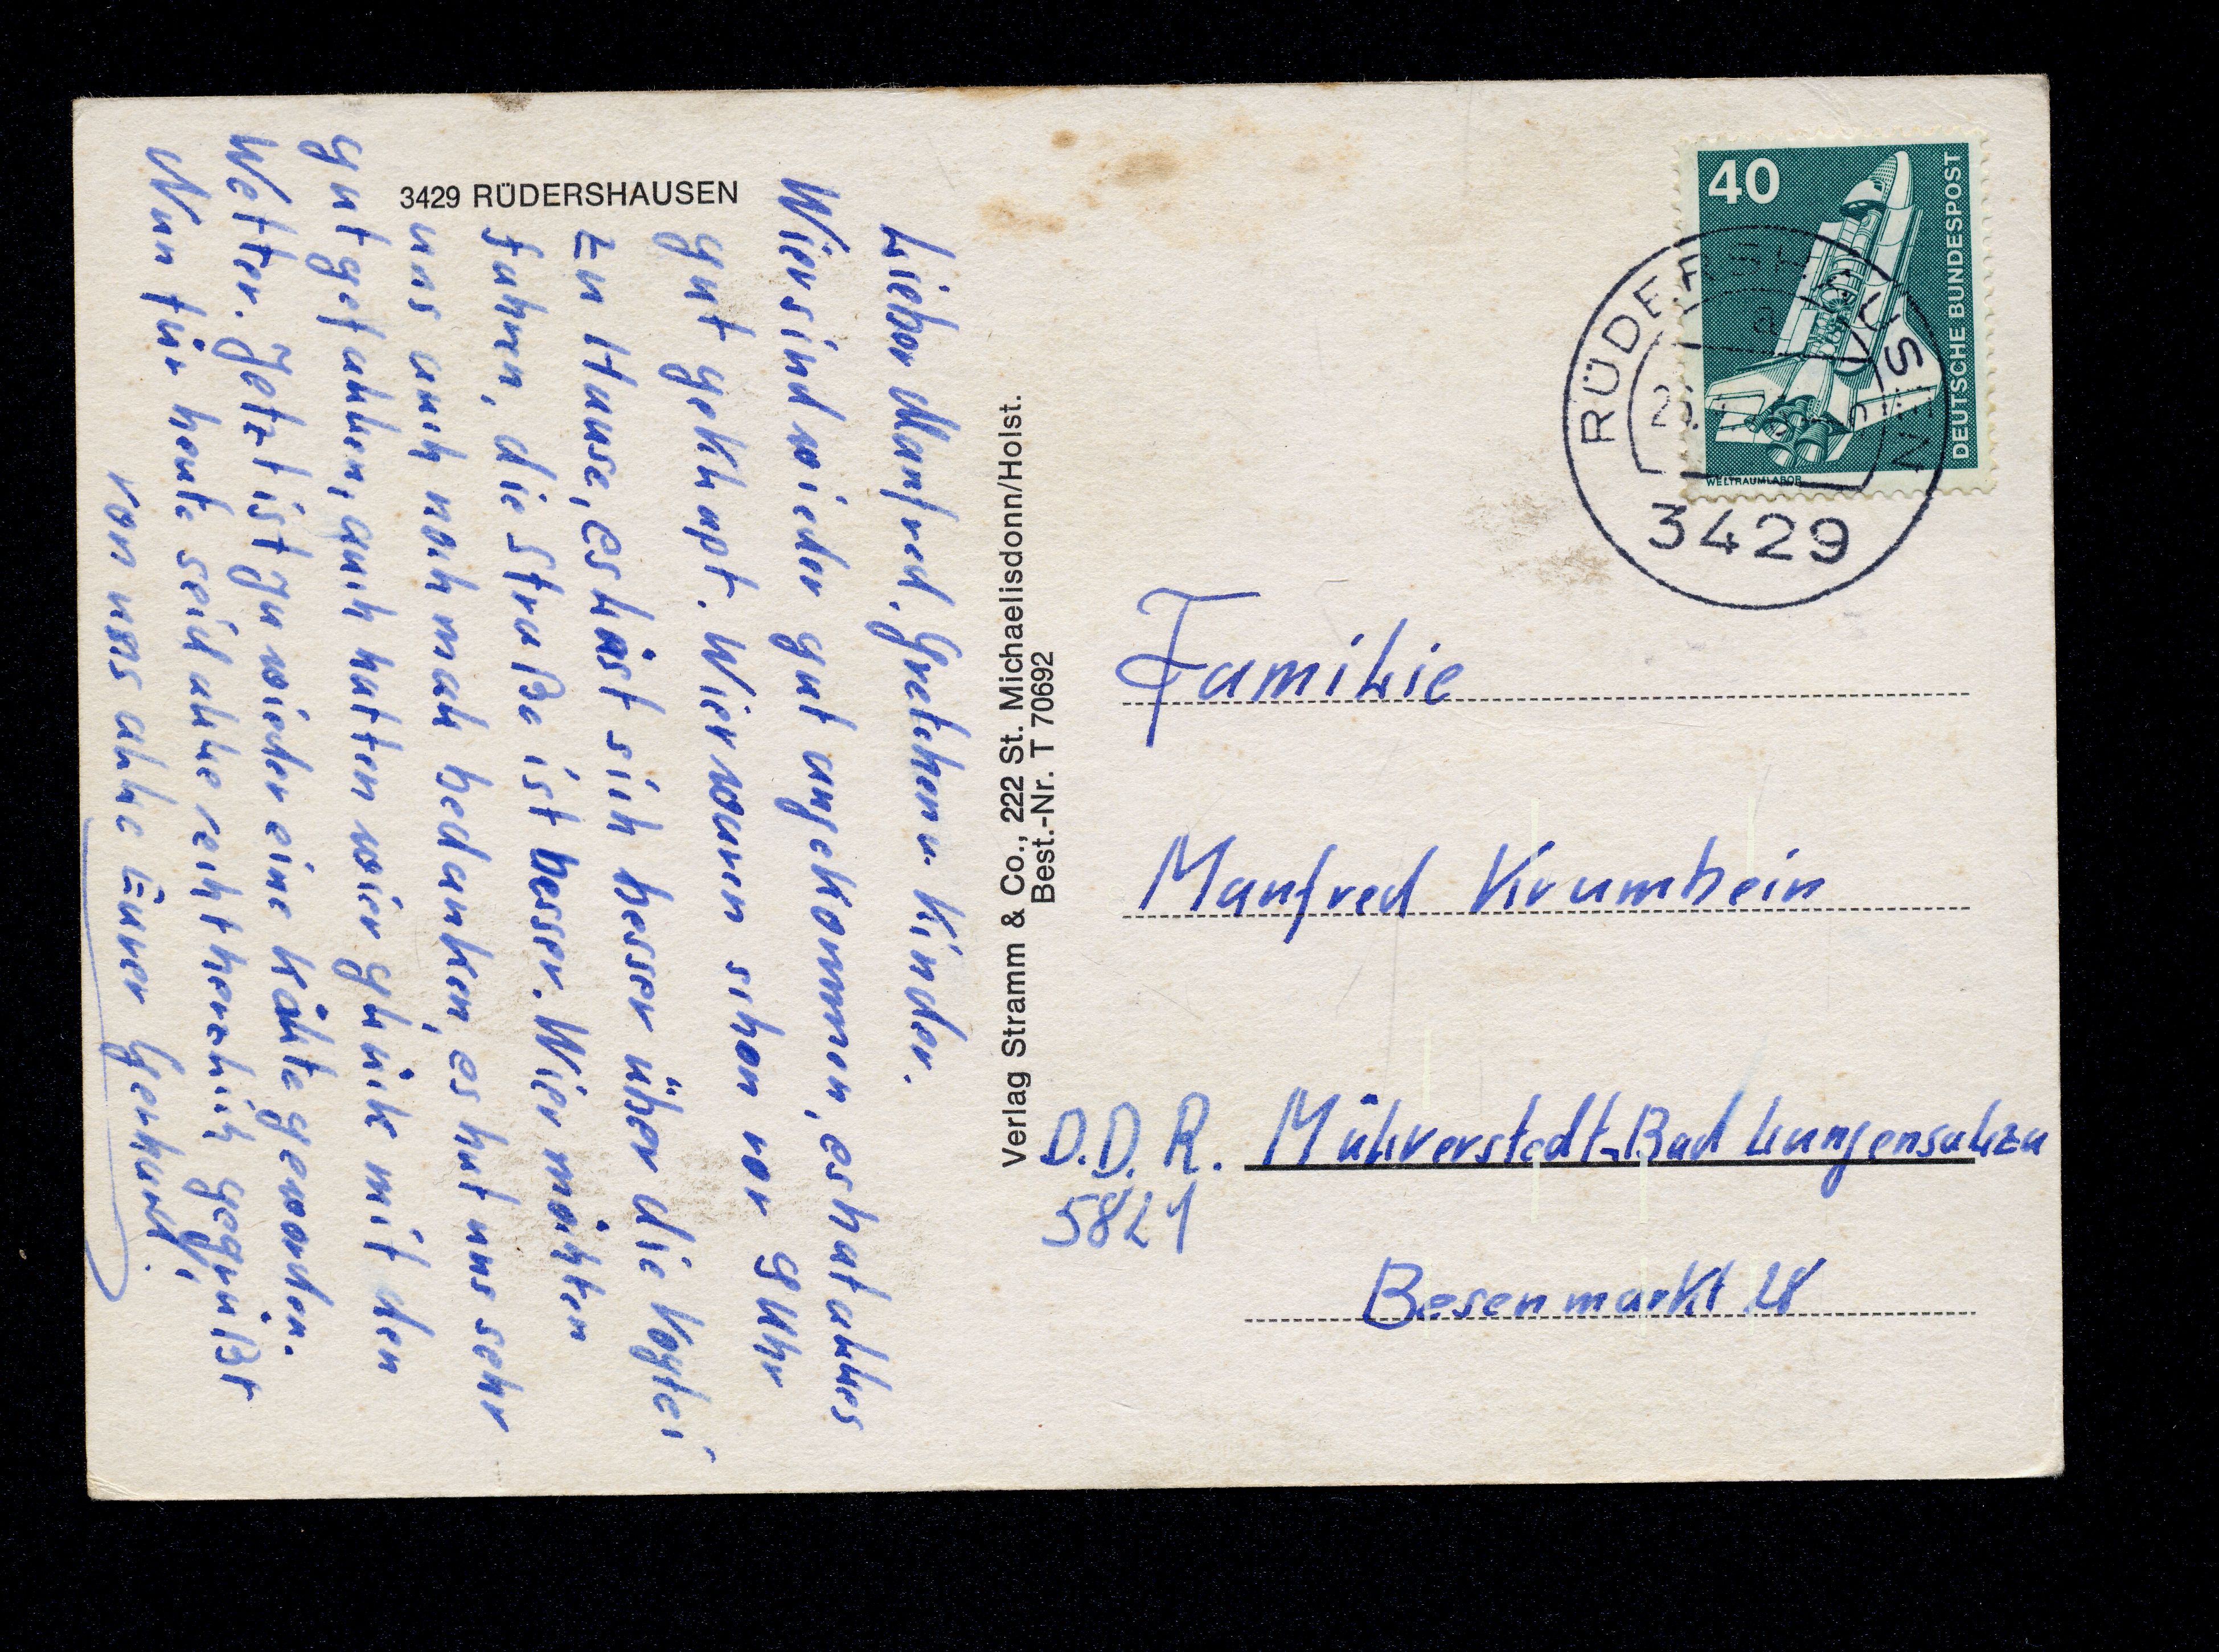 3429 RÜDERSHAUSEN
Lieber Manfred, Gretchen u. Kinder.
Wier sind wieder gut angekommen, es hat alles
gut geklapt. Wier waren schon vor 9 Uhr
zu Hause, es läst sich besser über die Vogtei
fahren, die Straße ist besser. Wier möchten
uns auch noch mal bedanken, es hat uns sehr
gut gefallen, auch hatten wier glück mit den
Wetter. Jetzt ist ja wieder eine kälte geworden.
Nun für heute seid alle recht herzlich gegrüßt
von uns alle Euer Gerhard,
Verlag Stramm & Co., 222 St. Michaelisdonn/Holst.
Best.-Nr. T 70692
40
DEUTSCHE BUNDESPOST
WELTRAUMLABOR
RÜDERSHAUSEN
a
3429
Familie
Manfred Krumbein
D.D.R. Mülverstedt-Bad Langensalza
5821
Besenmarkt 28